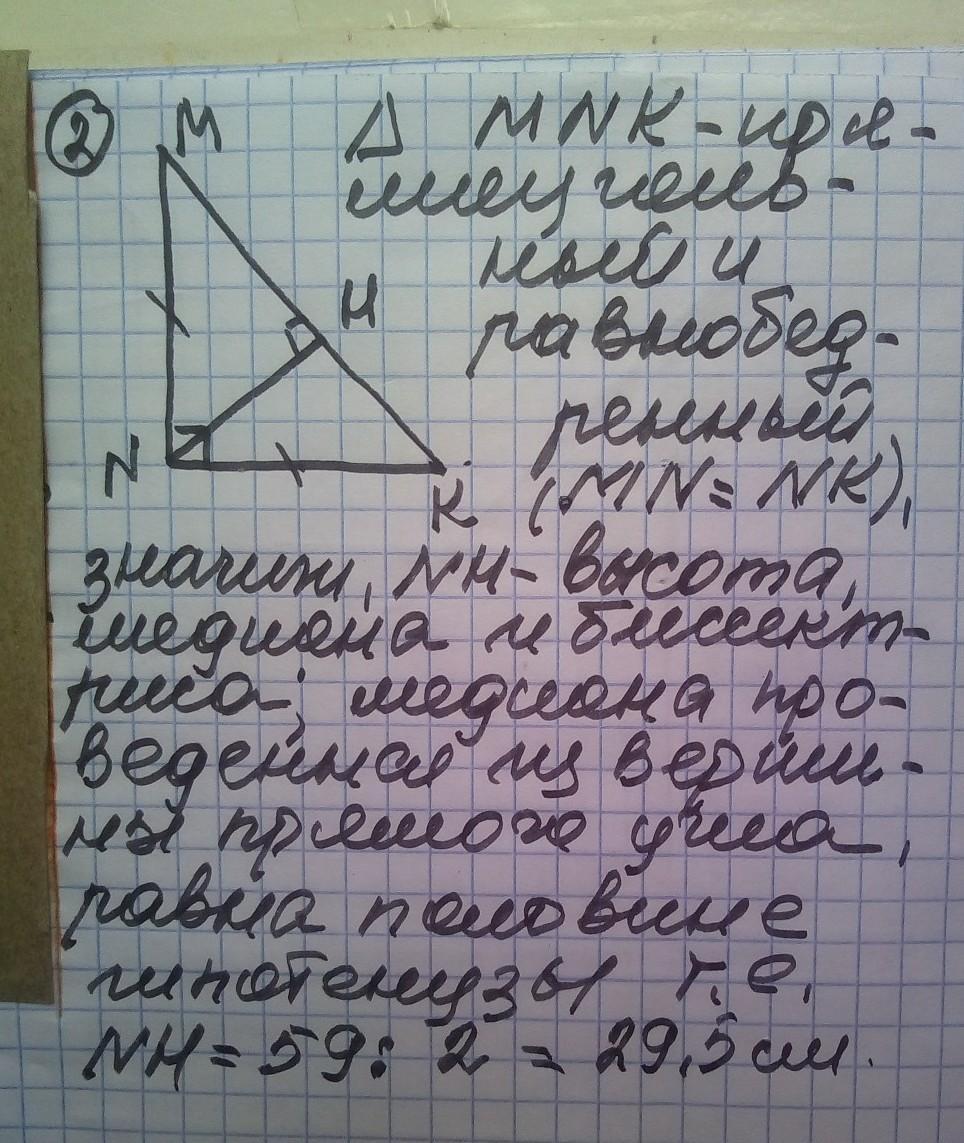 2
M Δ MNK - пря-
моуголь-
ный и
H
равнобед-
ренный
N
K (MN = NK),
значит, NH - высота,
медиана и биссект-
риса; медиана про-
веденная из верши-
ны прямого угла,
равна половине
гипотенузы т.е.
NH = 59 : 2 = 29,5 см.